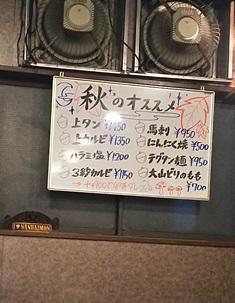 秋のオススメ
上タン ¥1450
上カルビ ¥1350
ハラミ塩 ¥1200
3錠カルビ ¥1150
馬刺 ¥950
にんにく焼 ¥500
テグタン麺 ¥950
大山どりのもも ¥700
I ♥ NANDAIMON